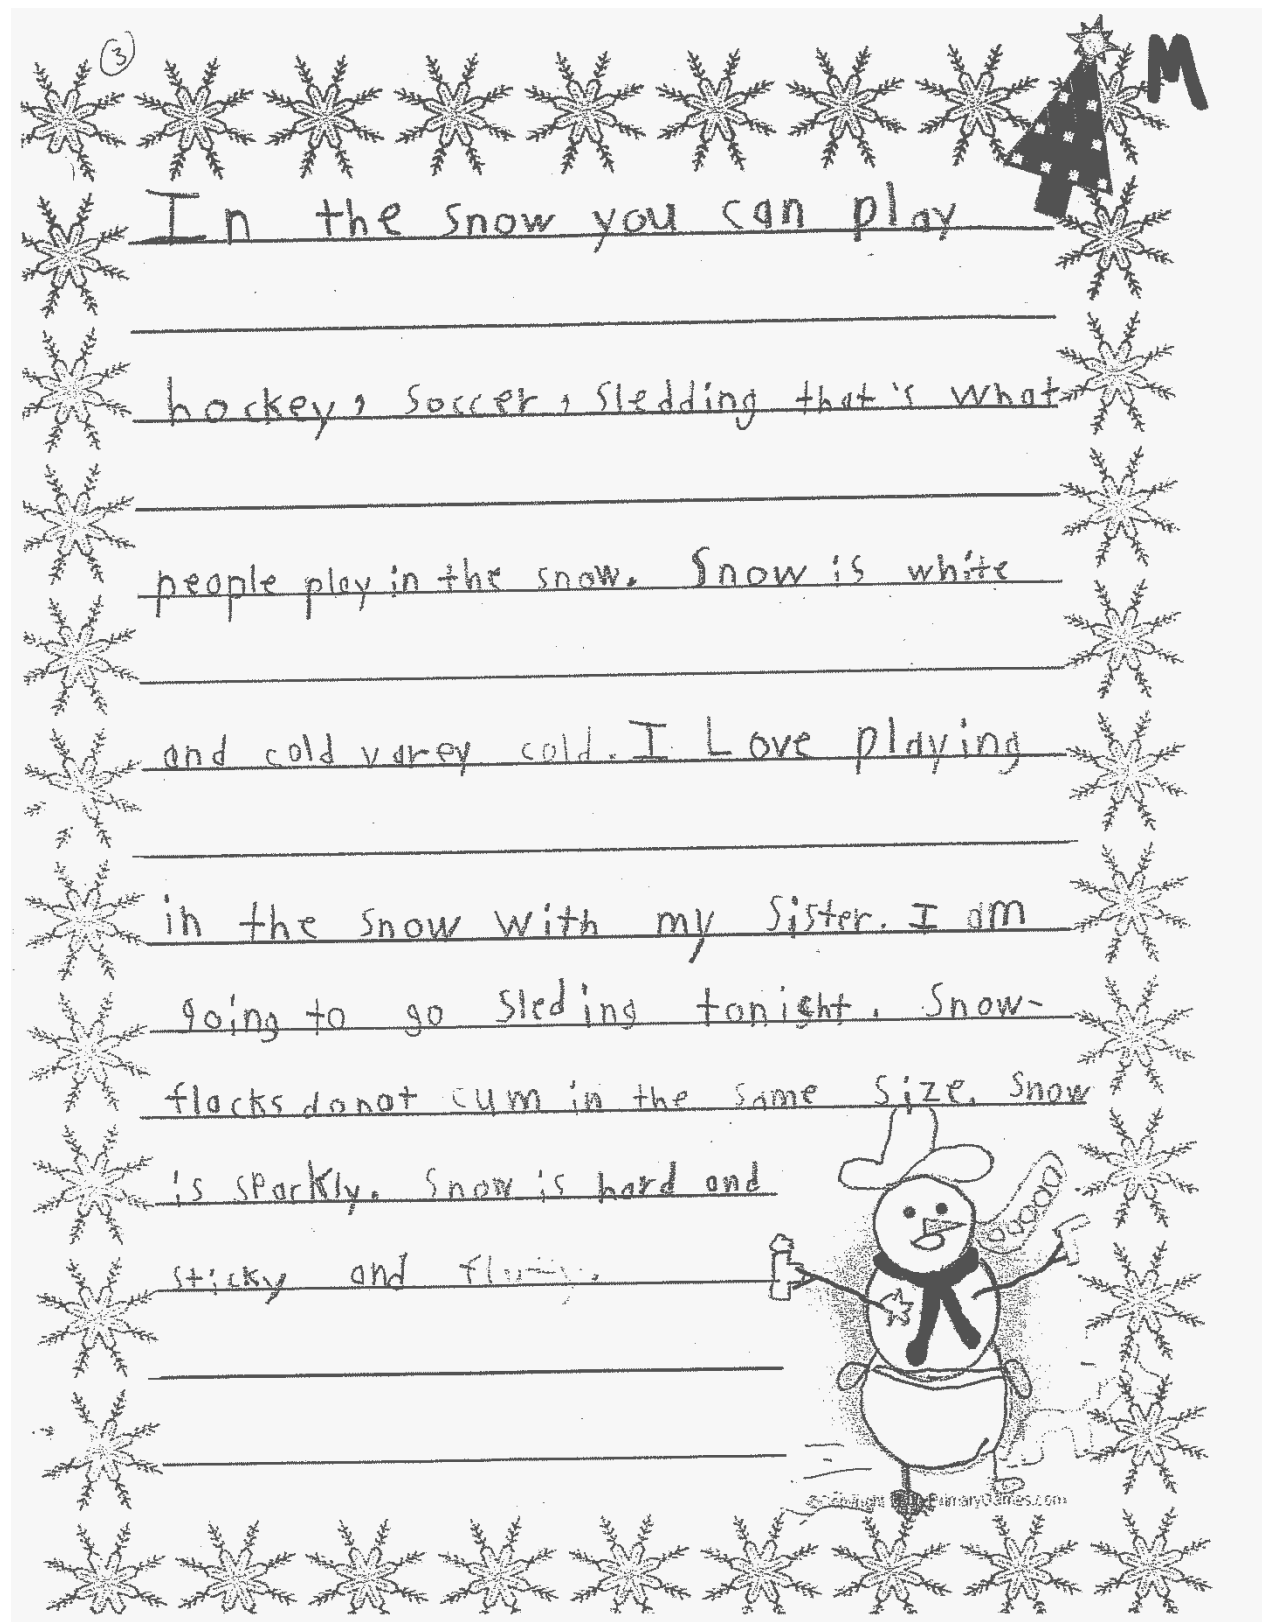 3
M
In the snow you can play
hockey, soccer, sledding that's what
people play in the snow. Snow is white
and cold varey cold. I Love playing
in the snow with my sister. I am
going to go sleding tonight. Snow-
flacks do not cum in the same size. Snow
is sparkly. Snow is hard and
sticky and
PrimaryGames.com